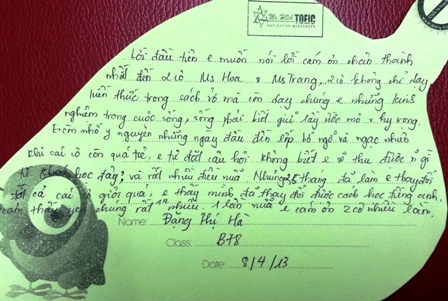 Ms. HOA TOEIC
Lời đầu tiên e muốn nói lời cám ơn chân thành
nhất đến 2 cô Ms Hoa & Ms Trang, 2 cô không chỉ dạy
kiến thức trong sách vở mà còn dạy chúng e những kinh
nghiệm trong cuộc sống, sống phải biết giữ lấy ước mơ & hy vọng.
E còn nhớ ý nguyên những ngày đầu đến lớp bỡ ngỡ và ngạc nhiên
khi cái cô còn quá trẻ, e tự đặt câu hỏi không biết e sẽ thu được gì
từ học đây? và rất nhiều điều nữa. Nhưng tháng đã làm e thay đổi
tất cả các cô giỏi quá, e thấy mình đã thay đổi được cách học tiếng anh.
cảm thấy yêu chúng rất nhiều. 1 lần nữa e cám ơn 2 cô nhiều lắm.
Name: Đặng Thị Hà
Class: B78
Date: 8/4/13